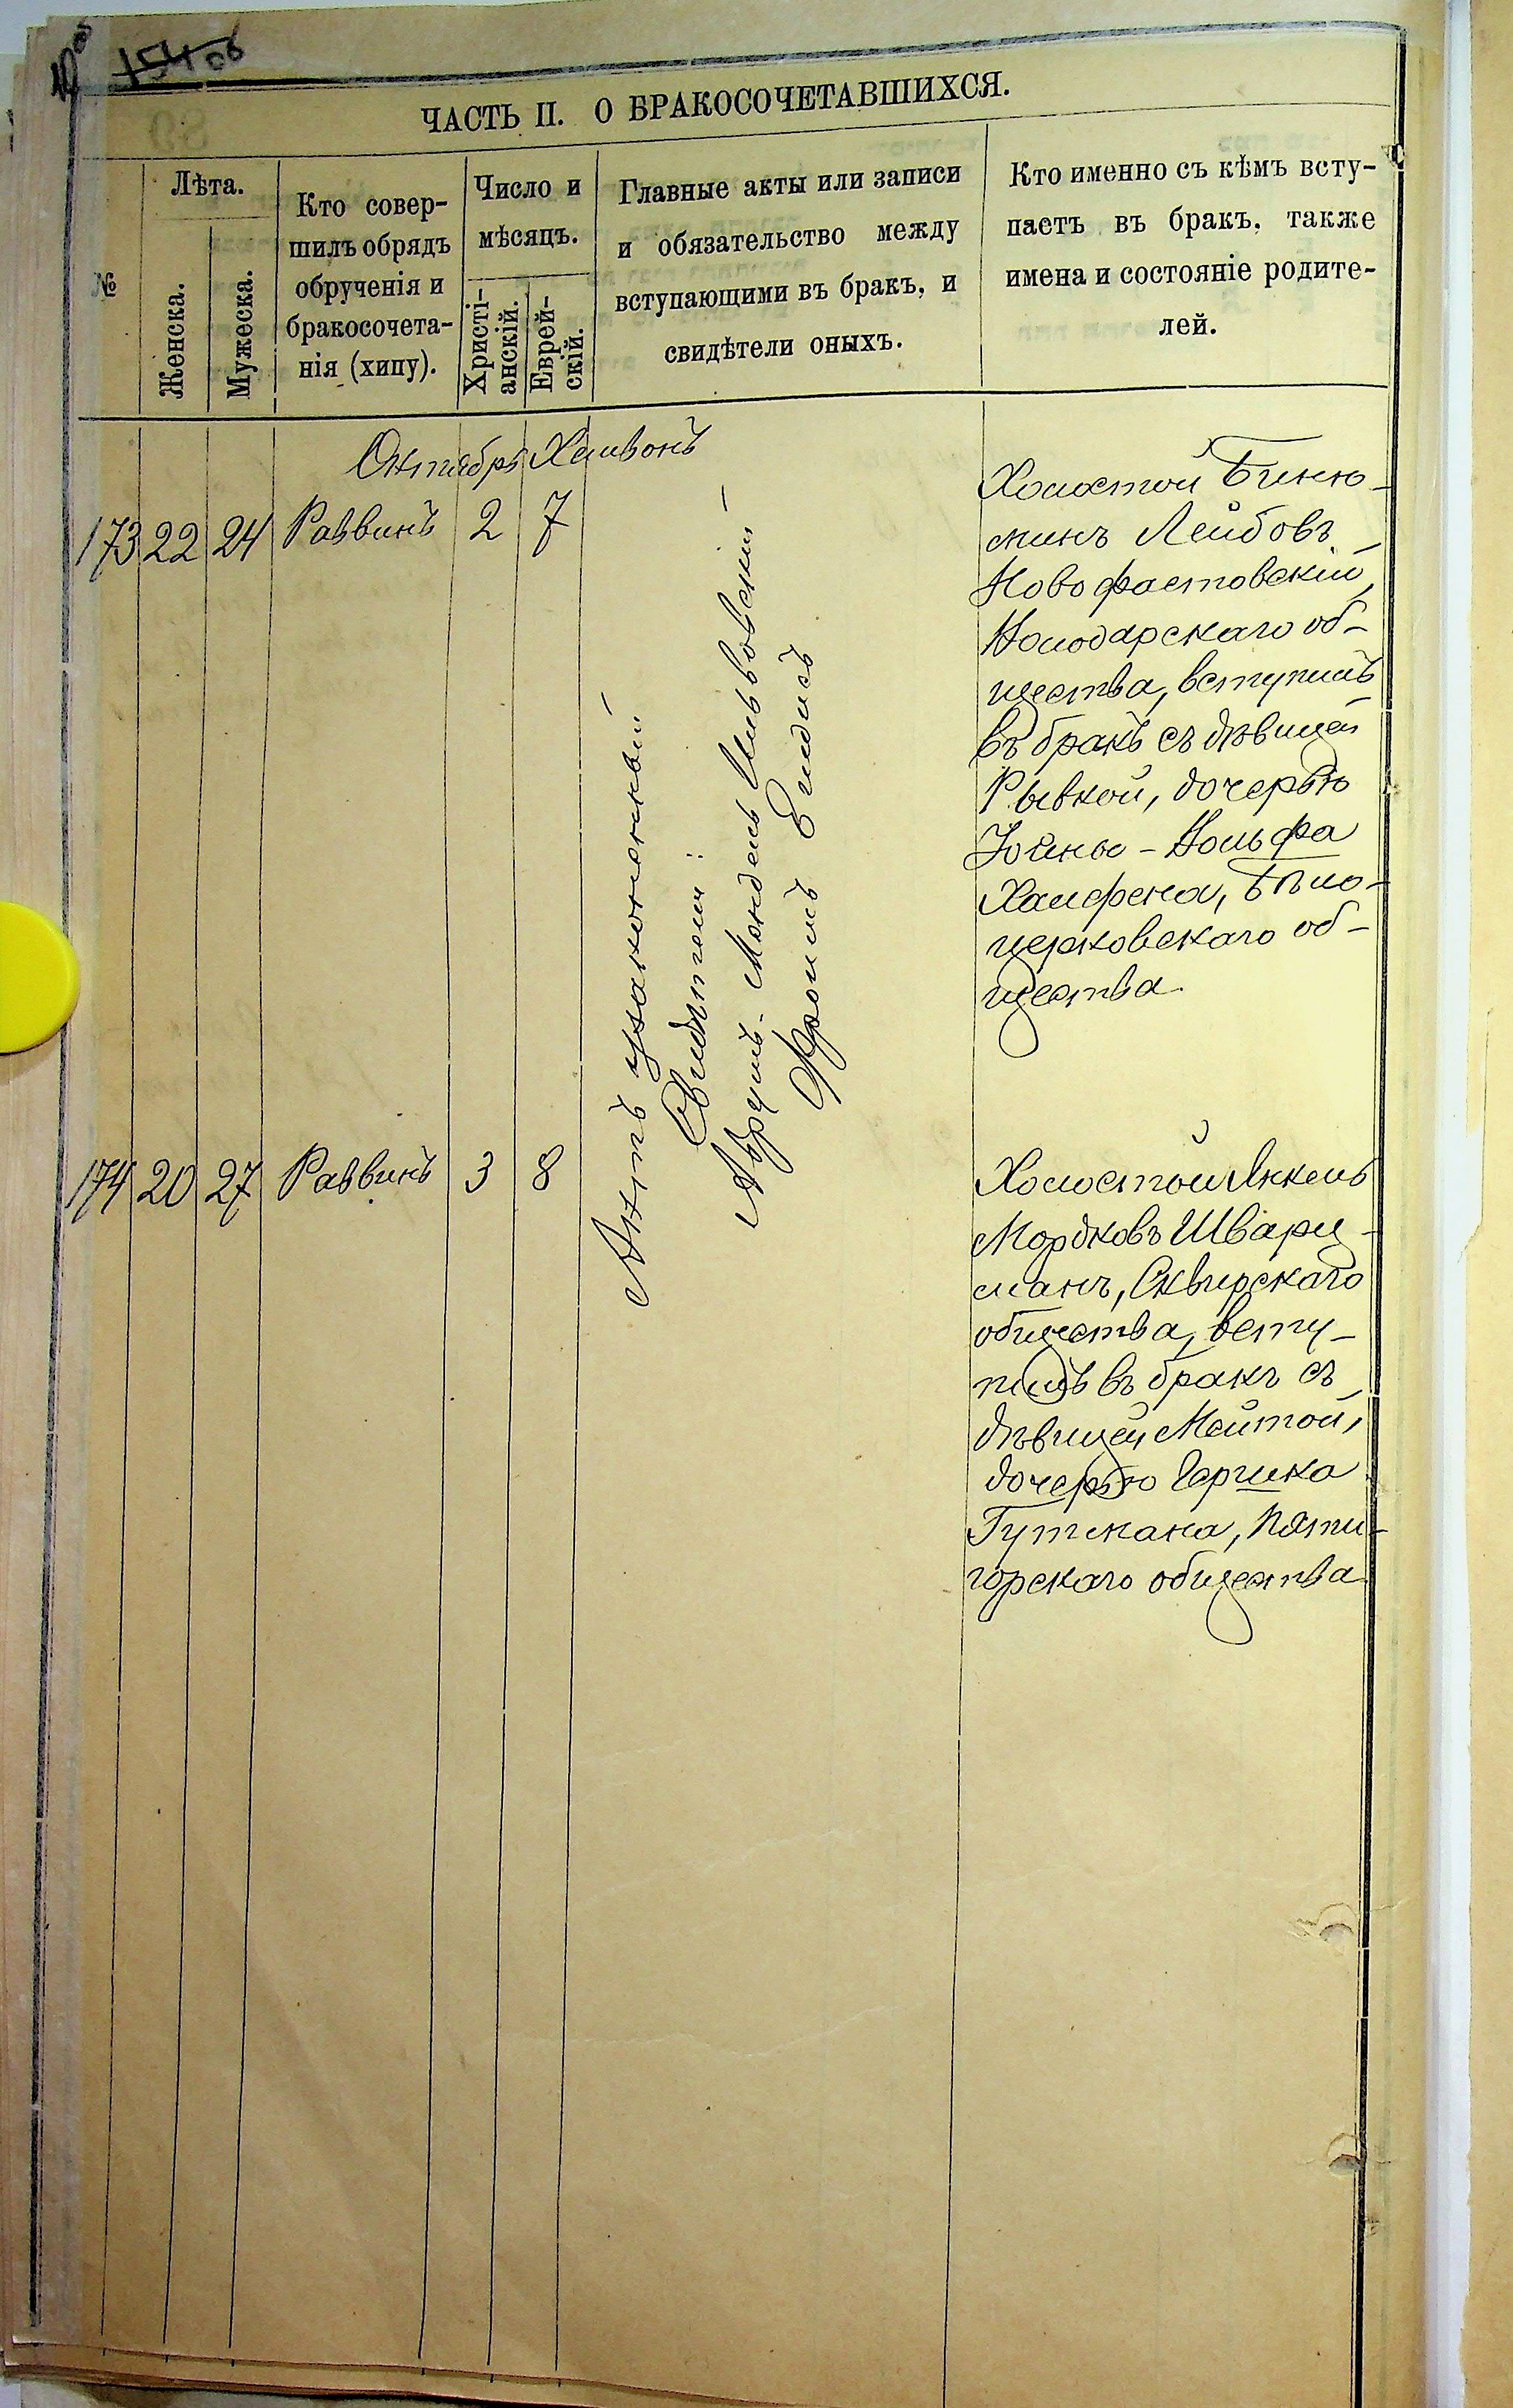 ЧАСТЬ II. О БРАКОСОЧЕТАВШИХСЯ.
№
Лѣта.
Женска.
Мужеска.
Кто совер-
шилъ обрядъ
обрученія и
бракосочета-
нія (хипу).
Число и
мѣсяцъ.
Христі-
анскій.
Еврей-
скій.
Главные акты или записи
и обязательство между
вступающими въ бракъ, и
свидѣтели оныхъ.
Кто именно съ кѣмъ всту-
паетъ въ бракъ, также
имена и состояніе родите-
лей.
Октябрь Хешвонъ
173 22 24 Раввинъ 2 7
Актъ узаконенный
Свидѣтели:
Фроимъ
Холостой Биню-
минъ Лейбовъ
Новофастовскій,
Володарскаго об-
щества, вступилъ
въ бракъ съ дѣвицей
Рывкой, дочерью
Іойны-Вольфа
Бѣло-
церковскаго об-
щества.
174 20 27 Раввинъ 3 8
Холостой Янкель
Мордковъ Шварц-
манъ, Сквирскаго
общества, всту-
пилъ въ бракъ съ
дѣвицей Мейтой,
дочерью Гершка
Гутмана, Пяти-
горскаго общества